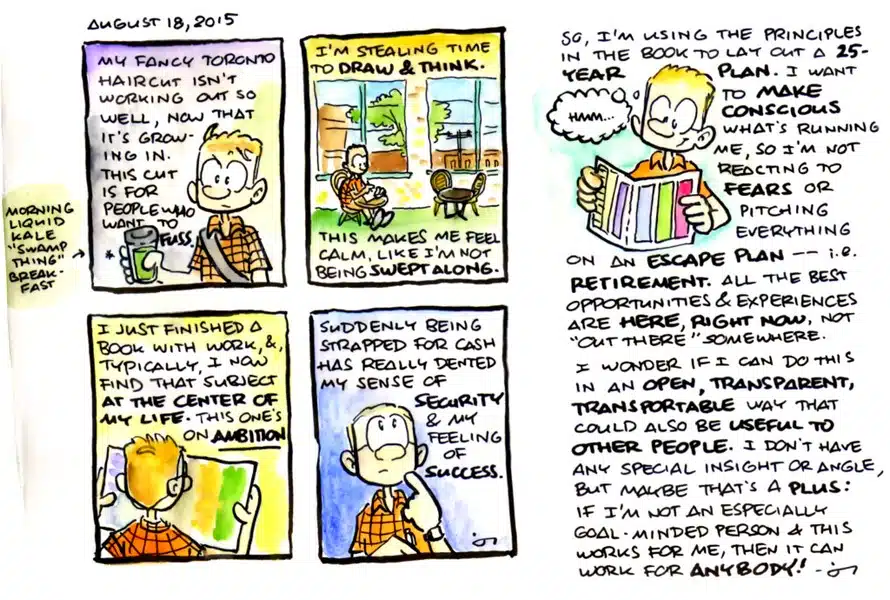 AUGUST 18, 2015
MY FANCY TORONTO
HAIRCUT ISN'T
WORKING OUT SO
WELL, NOW THAT
IT'S GROW-
ING IN.
THIS CUT
IS FOR
PEOPLE WHO
WANT TO
FUSS.
*
MORNING
LIQUID
KALE
"SWAMP
THING"
BREAK-
FAST
I'M STEALING TIME
TO DRAW & THINK.
THIS MAKES ME FEEL
CALM, LIKE I'M NOT
BEING SWEPT ALONG.
I JUST FINISHED A
BOOK WITH WORK, &,
TYPICALLY, I NOW
FIND THAT SUBJECT
AT THE CENTER OF
MY LIFE. THIS ONE'S
ON AMBITION
SUDDENLY BEING
STRAPPED FOR CASH
HAS REALLY DENTED
MY SENSE OF
SECURITY
& MY
FEELING
OF
SUCCESS.
SO, I'M USING THE PRINCIPLES
IN THE BOOK TO LAY OUT A 25-
YEAR PLAN. I WANT
TO MAKE
CONSCIOUS
WHAT'S RUNNING
ME, SO I'M NOT
REACTING TO
FEARS OR
PITCHING
EVERYTHING
ON AN ESCAPE PLAN -- i.e.
RETIREMENT. ALL THE BEST
OPPORTUNITIES & EXPERIENCES
ARE HERE, RIGHT NOW, NOT
"OUT THERE" SOMEWHERE.
HMM...
I WONDER IF I CAN DO THIS
IN AN OPEN, TRANSPARENT,
TRANSPORTABLE WAY THAT
COULD ALSO BE USEFUL TO
OTHER PEOPLE. I DON'T HAVE
ANY SPECIAL INSIGHT OR ANGLE,
BUT MAYBE THAT'S A PLUS:
IF I'M NOT AN ESPECIALLY
GOAL-MINDED PERSON & THIS
WORKS FOR ME, THEN IT CAN
WORK FOR ANYBODY!